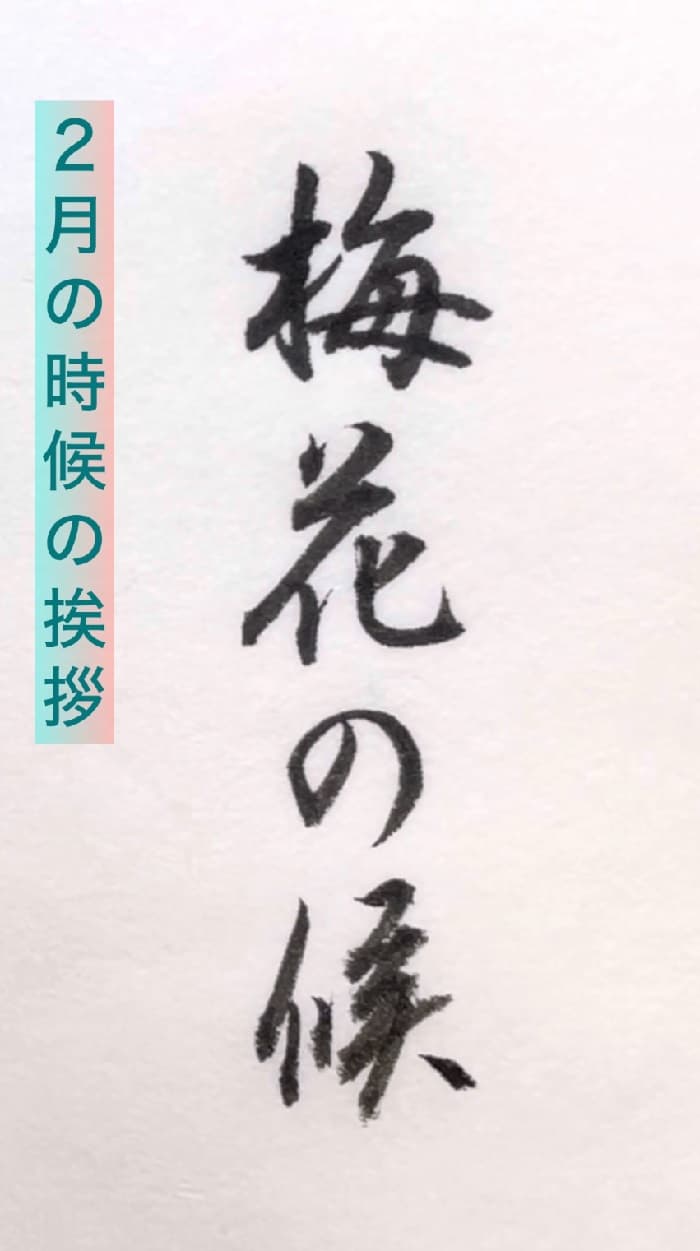 梅花の候
2月の時候の挨拶